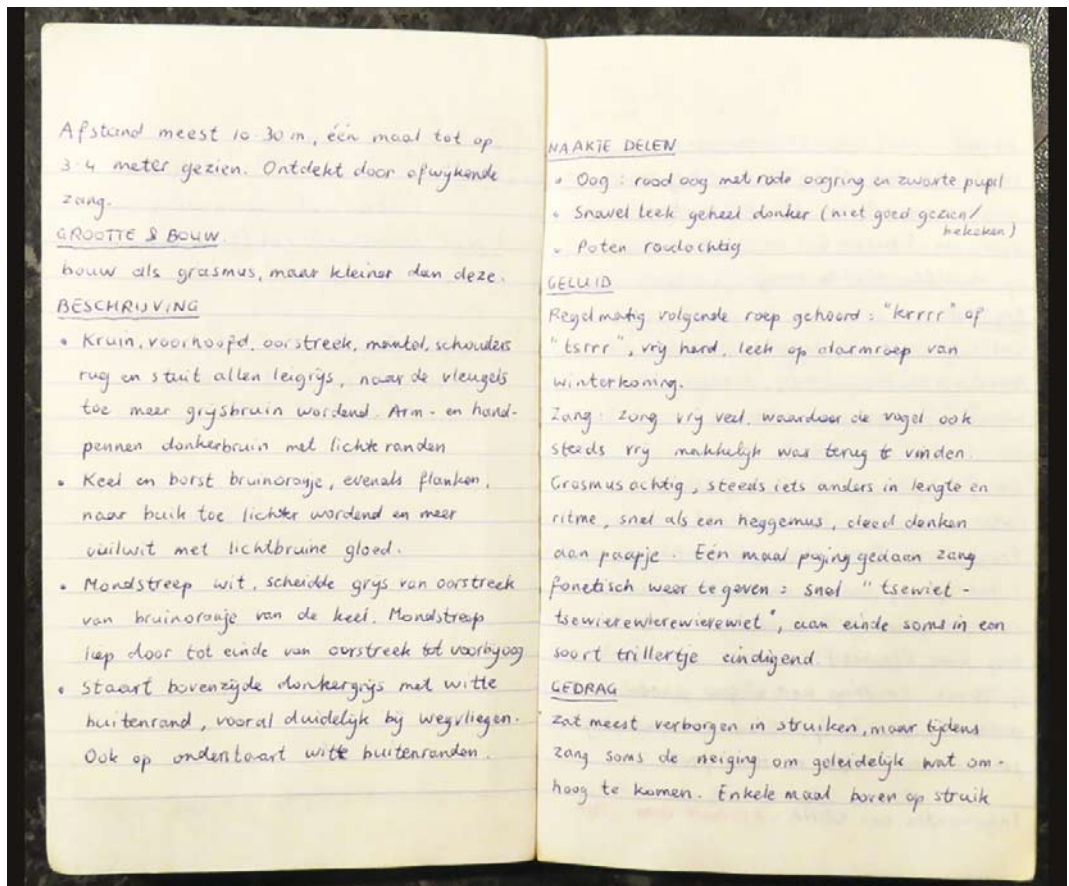 Afstand meest 10-30 m, één maal tot op
3-4 meter gezien. Ontdekt door afwijkende
zang.
GROOTTE & BOUW
bouw als grasmus, maar kleiner dan deze.
BESCHRIJVING
• Kruin, voorhoofd, oorstreek, mantel, schouders
rug en stuit allen leigrijs, naar de vleugels
toe meer grijsbruin wordend. Arm- en hand-
pennen donkerbruin met lichte randen
• Keel en borst bruinoranje, evenals flanken,
naar buik toe lichter wordend en meer
vuilwit met lichtbruine gloed.
• Mondstreep wit, scheidde grijs van oorstreek
van bruinoranje van de keel. Mondstreep
liep door tot einde van oorstreek tot voorbij oog
• Staart bovenzijde donkergrijs met witte
buitenrand, vooral duidelijk bij wegvliegen.
Ook op onderstaart witte buitenranden.
NAAKTE DELEN
• Oog : rood oog met rode oogring en zwarte pupil
• Snavel leek geheel donker (niet goed gezien/
bekeken)
• Poten roodachtig
GELUID
Regelmatig volgende roep gehoord : "krrrr" of
"tsrrr", vrij hard, leek op alarmroep van
winterkoning.
Zang : zong vrij veel, waardoor de vogel ook
steeds vrij makkelijk was terug te vinden.
Grasmusachtig, steeds iets anders in lengte en
ritme, snel als een heggemus, deed denken
aan paapje. Eén maal poging gedaan zang
fonetisch weer te geven : snel "tsewiet-
tsewierewierewierewiet", aan einde soms in een
soort trillertje eindigend
GEDRAG
zat meest verborgen in struiken, maar tijdens
zang soms de neiging om geleidelijk wat om-
hoog te komen. Enkele maal boven op struik